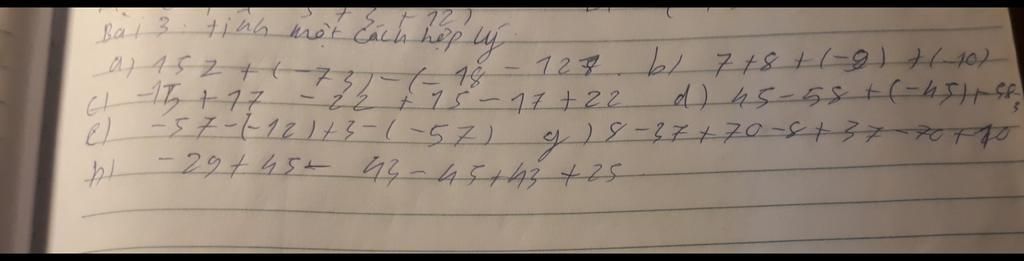 + 3 + 12)
Bài 3: tính một cách hợp lý
a) 152 + (-73) - (-18 - 127. b) 7+8+(-9)+(-10)
c) -15+17 -22 +15-17+22 d) 45-58+(-45)+58
e) -57-(-12)+3-(-57) g) 8-37+70-8+37-70+10
h) -29+45- 43-45+43+25